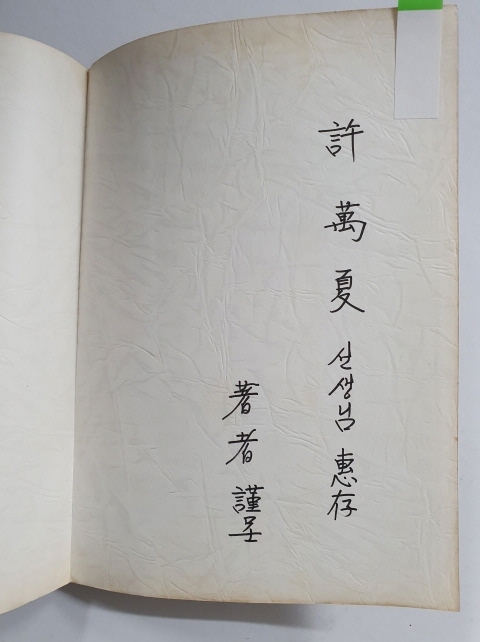 許萬夏 선생님 惠存
著者 謹呈